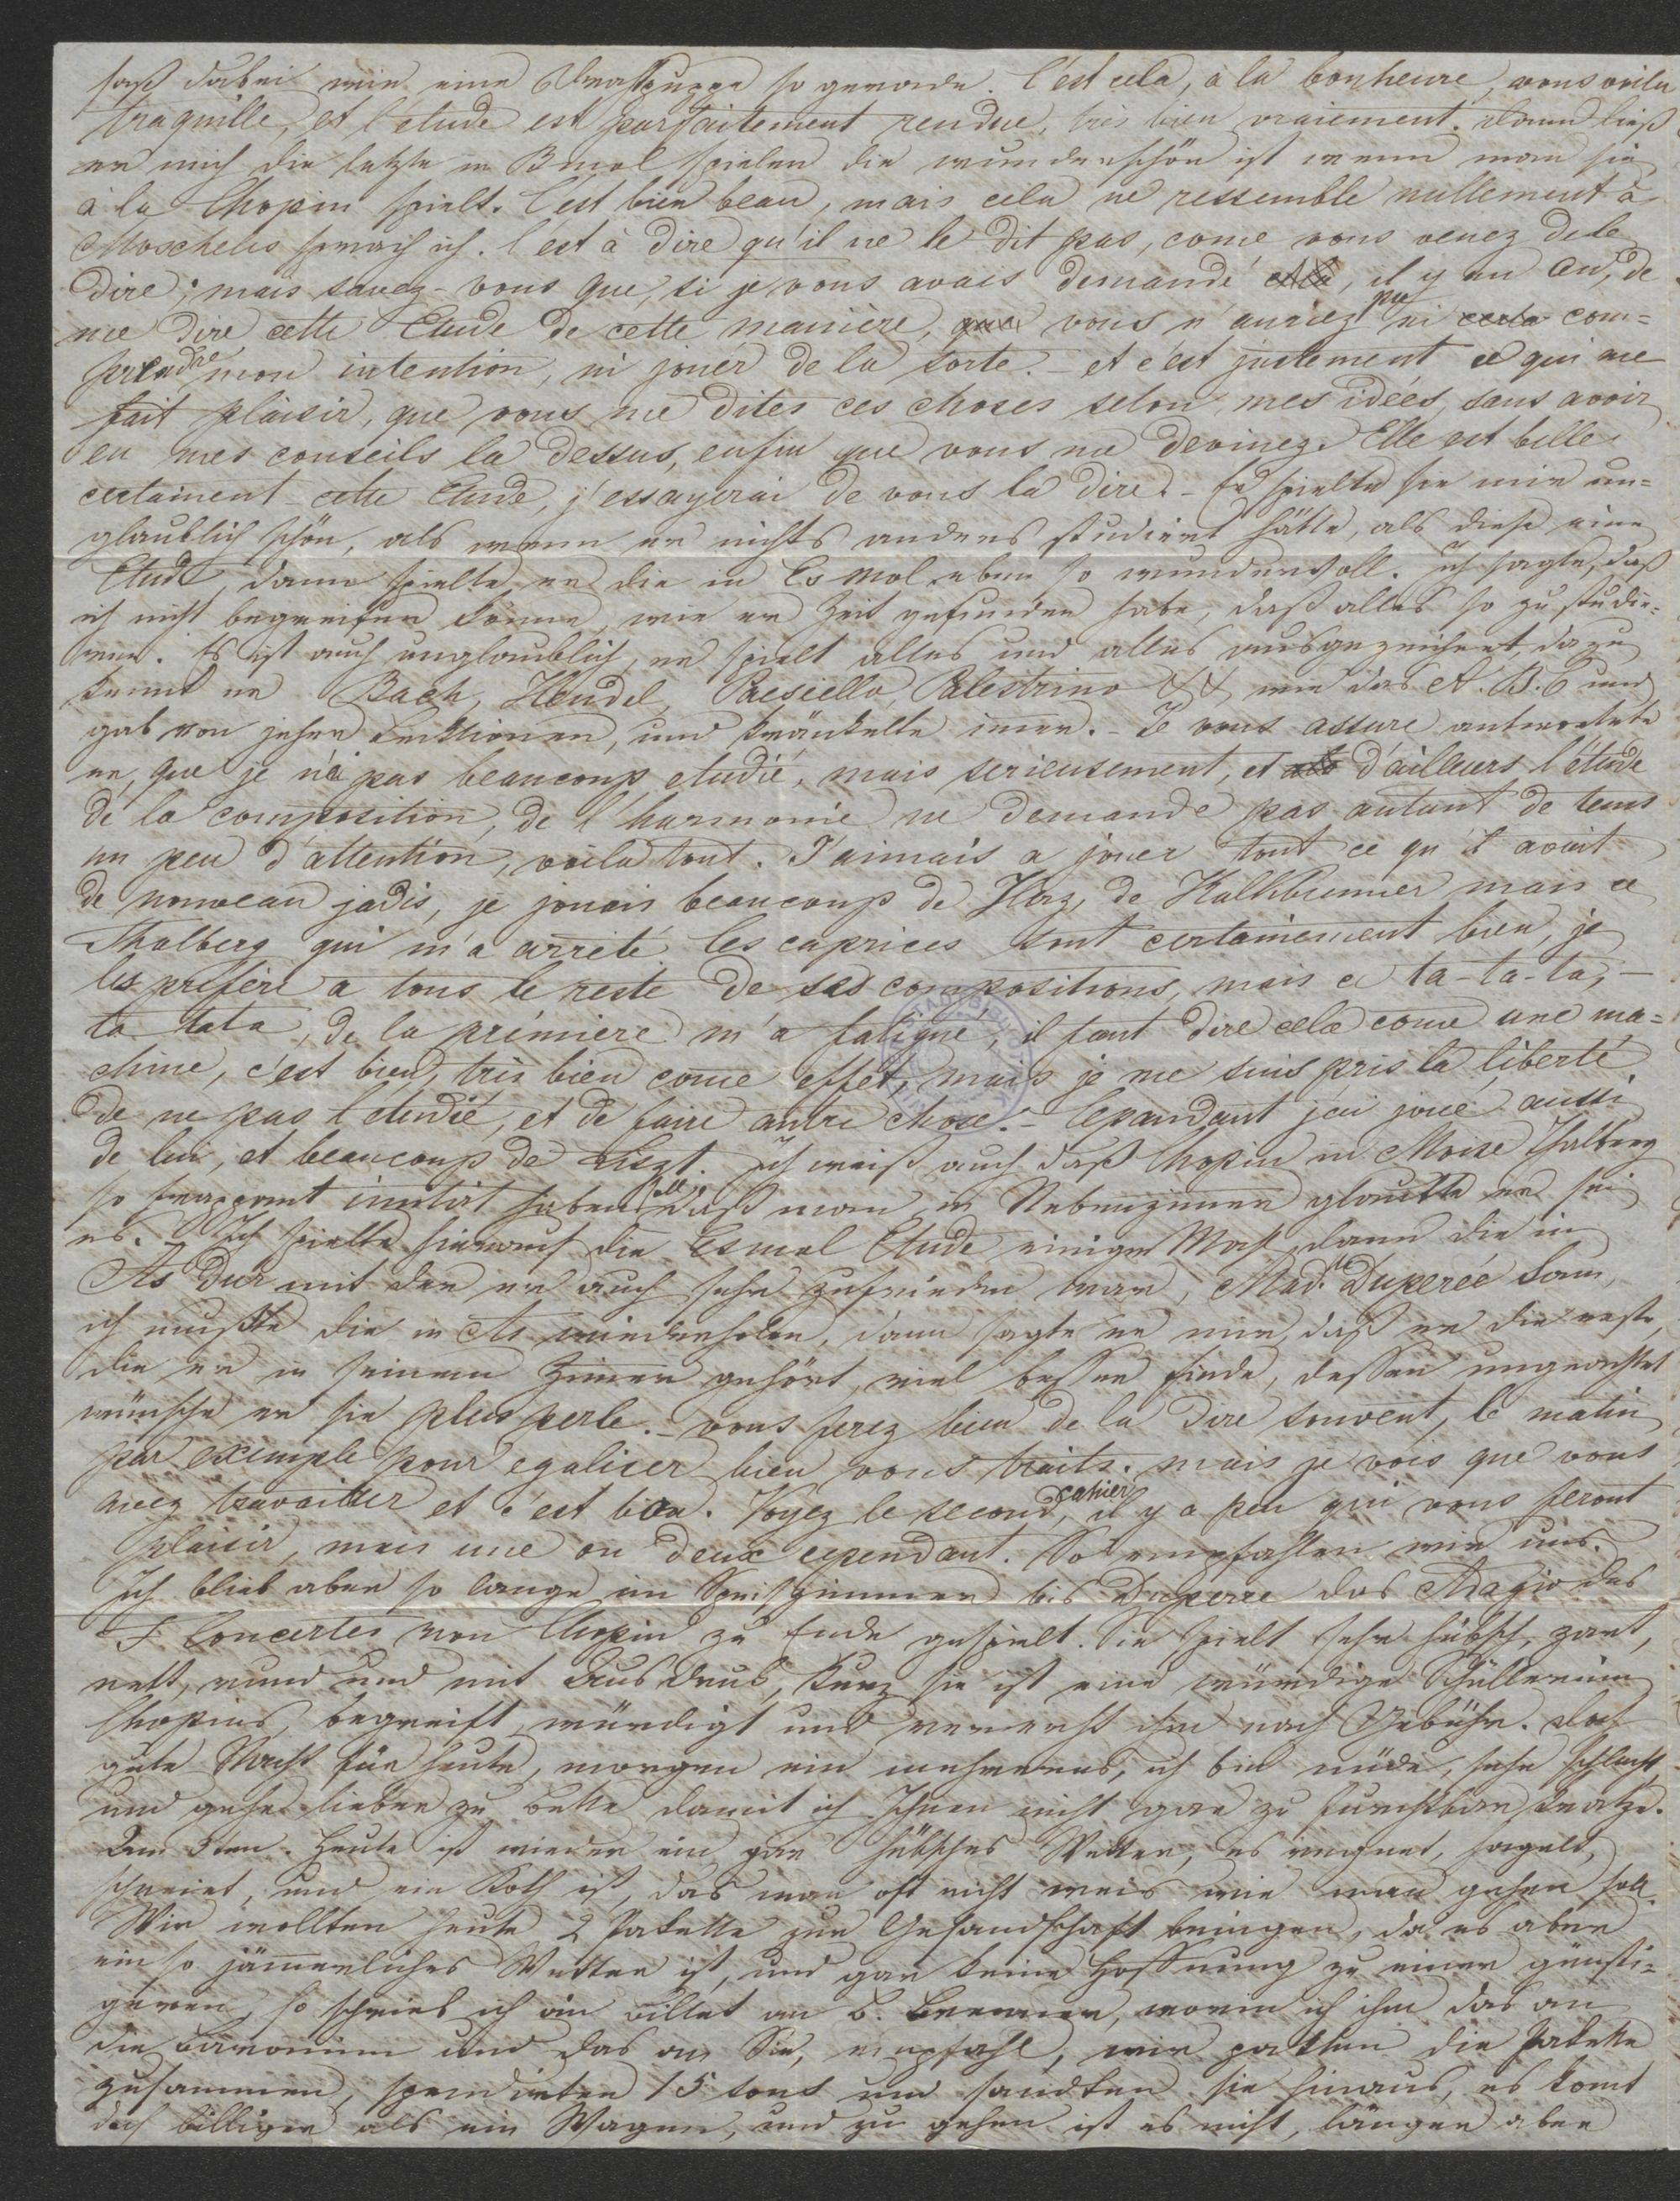 saß dabei wie eine so gerade. C'est cela, à la bonheure, vous voila
traquille, et l'etude est parfaitement rendue, très bien vraiement. Dann ließ
er mich die letzte in Bmol spielen die wunderschön ist wenn man sie
à la Chopin spielt. C'est bien beau, mais cela ne ressemble nullement à
Moscheles sprach ich. C'est à dire qu'il ne le dit pas, come vous venez de le
dire; mais savez-vous que, si je vous avais demandé, il y un an, de
me dire cette Etude de cette maniere, vous n'auriez pu ni com=
prendre mon intention, ni jouer de la sorte. – et c'est justement ce qui me
fait plaisir, que vous me dites ces choses selon mes idées, sans avoir
eu mes conseils la dessus, enfin que vous me devinez. Elle est belle
certainent cette Etude, j'essayerai de vous la dire. – Er spielte sie mir un=
glaublich schön, als wenn er nichts anders studiert hätte, als diese eine
Etude, dann spielte er die in Es mol eben so wundervoll. Ich sagte, daß
ich nicht begreifen könne, wie er Zeit gefunden habe, daß alles so zu studie=
ren. Es ist auch unglaublich, er spielt alles und alles ausgezeichnet, dazu
kennt er Bach, Hendel, Paesiello, Palestrino && wie das A. B. C und
gab von jeher Lectionen, und kränkelte immer. – Je vous assure antwortete
er, que je n'ai pas beaucoup etudié, mais serieusement, et d'ailleurs l'étude
de la composition, de l'harmonie ne demande pas autant de tems
un peu d'attention, voila tout. J'aimais a jouer tout ce qu'il avait
de nouveau jadis, je jouais beaucoup de Herz, de Kalkbrenner mais ce
Thalberg qui m'a arreté. Les caprices sont certainement bien, je
les prefère a tous le reste de ses compositions, mais ce ta-ta-ta, –
ta tata, de la prémiere m'a fatigué, il faut dire cela come une ma=
chine, c'est bien, très bien come effet, mais je me suis pris la liberté
de ne pas l'etudié, et de faire autre chose. – Cepandant j'ai joué aussi
de lui, et beaucoup de Liszt. Ich weiß auch daß Chopin in Moise Thalberg
so frappant imitirt haben soll, daß man im Nebenzimmer glaubte er sei
es. – Ich spielte hierauf die Esmol Etude einigen Mal, dann die in
As Dur mit der er auch sehr zufrieden war, Mad.lle Duperée kam,
ich mußte die in As wiederholen, dann sagte er mir, daß er die erste,
die er in seinem Zimmer gehört, viel besser finde, dessen ungeachtet
wünsche er sie plus perle. – vous ferez bien de la dire souvent, le matin
par exemple pour egaliser bien vous traits. mais je vois que vous
avez travailler et c'est bien. Voyez le second cahier, il y a peu qui vous feront
plaisir, mais une ou deux cependant. So empfahlen wir uns.
Ich blieb aber so lange im Speiszimmer bis Duperre das Adagio des
F Concertes von Chopin zu Ende gespielt. Sie spielt sehr hübsch, zart,
nett, rund und mit Ausdruck, kurz sie ist eine würdige Schüllerin
Chopins, begreift, würdigt und verehrt ihn nach Gebühr. Doch
gute Nacht für heute, morgen ein mehreres, ich bin müde, sehe schlecht
und gehe lieber zu Bette damit ich Ihnen nicht gar zu furchtbar kratze.
Den 3ten. Heute ist wieder ein gar hübsches Wetter, es regnet, hagelt,
schneiet, und ein Koth ist, das man oft nicht weis wie man gehen soll.
Wir wollten heute 2 Pakette zur Gesandschaft bringen, da es aber
ein so jämmerliches Wetter ist, und gar keine Hoffnung zu einer günsti=
geren, so schrieb ich ein Billet an B. worin ich ihm das an
die Baronin und das an Sie, empfahl, wir packten die Pakette
zusammen, spendirten 15 sous und sandten sie hinaus, es komt
doch billiger als ein Wagen, und zu gehen ist es nicht, länger aber